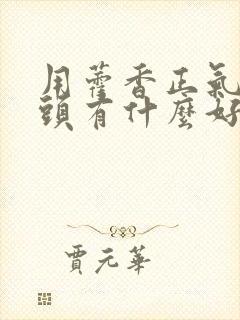 用藿香正氣
頭有什麼好
賈元華